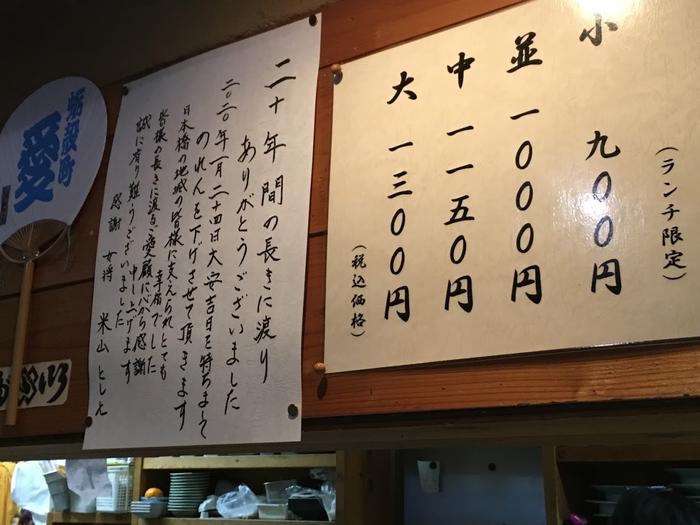 (ランチ限定)
小 九00円
並 一000円
中 一一五0円
大 一三00円
(税込価格)
二十年間の長きに渡り
ありがとうございました
二〇二〇年一月二十四日大安吉日を持ちまして
のれんを下げさせて頂きます
日本橋の地域の皆様に支えられとても
幸届でした
皆様の長きに渡るご愛顧に心から感謝
申し上げます
誠に有り難うございました
感謝 女将 米山とし
蛎殻町
愛